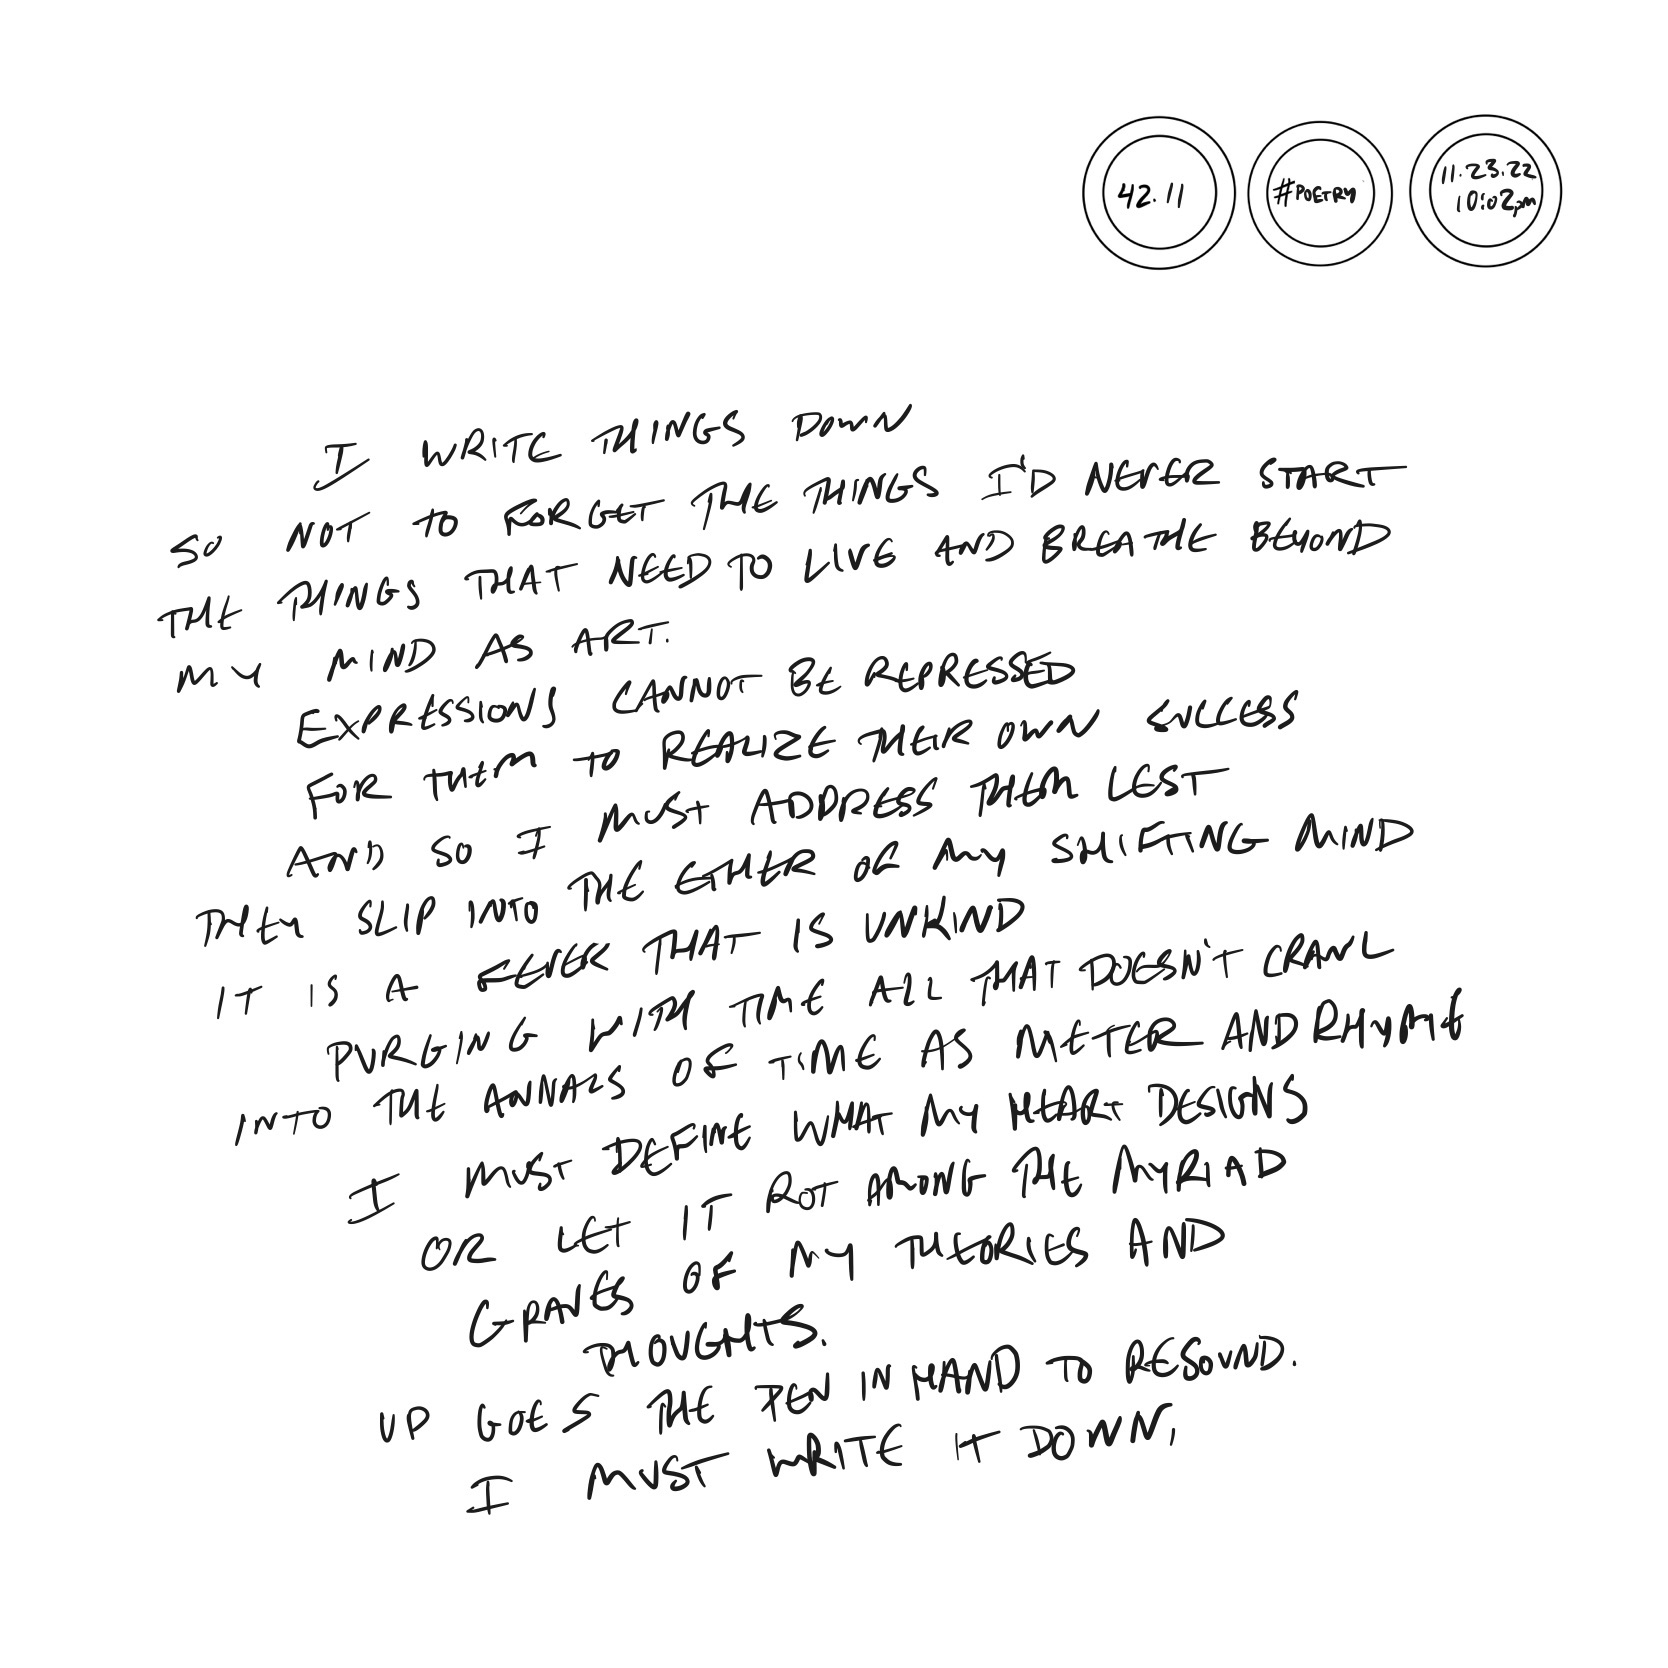 42.11
#POETRY
11.23.22
10:02pm
I WRITE THINGS DOWN
SO NOT TO FORGET THE THINGS I'D NEVER START
THE THINGS THAT NEED TO LIVE AND BREATHE BEYOND
MY MIND AS ART.
EXPRESSIONS CANNOT BE REPRESSED
FOR THEM TO REALIZE THEIR OWN SUCCESS
AND SO I MUST ADDRESS THEM LEST
THEY SLIP INTO THE ETHER OF MY SHIFTING MIND
IT IS A FEVER THAT IS UNKIND
PURGING WITH TIME ALL THAT DOESN'T CRAWL
INTO THE ANNALS OF TIME AS METER AND RHYME
I MUST DEFINE WHAT MY HEART DESIGNS
OR LET IT ROT AMONG THE MYRIAD
GRAVES OF MY THEORIES AND
THOUGHTS.
UP GOES THE PEN IN HAND TO RESOUND.
I MUST WRITE IT DOWN,